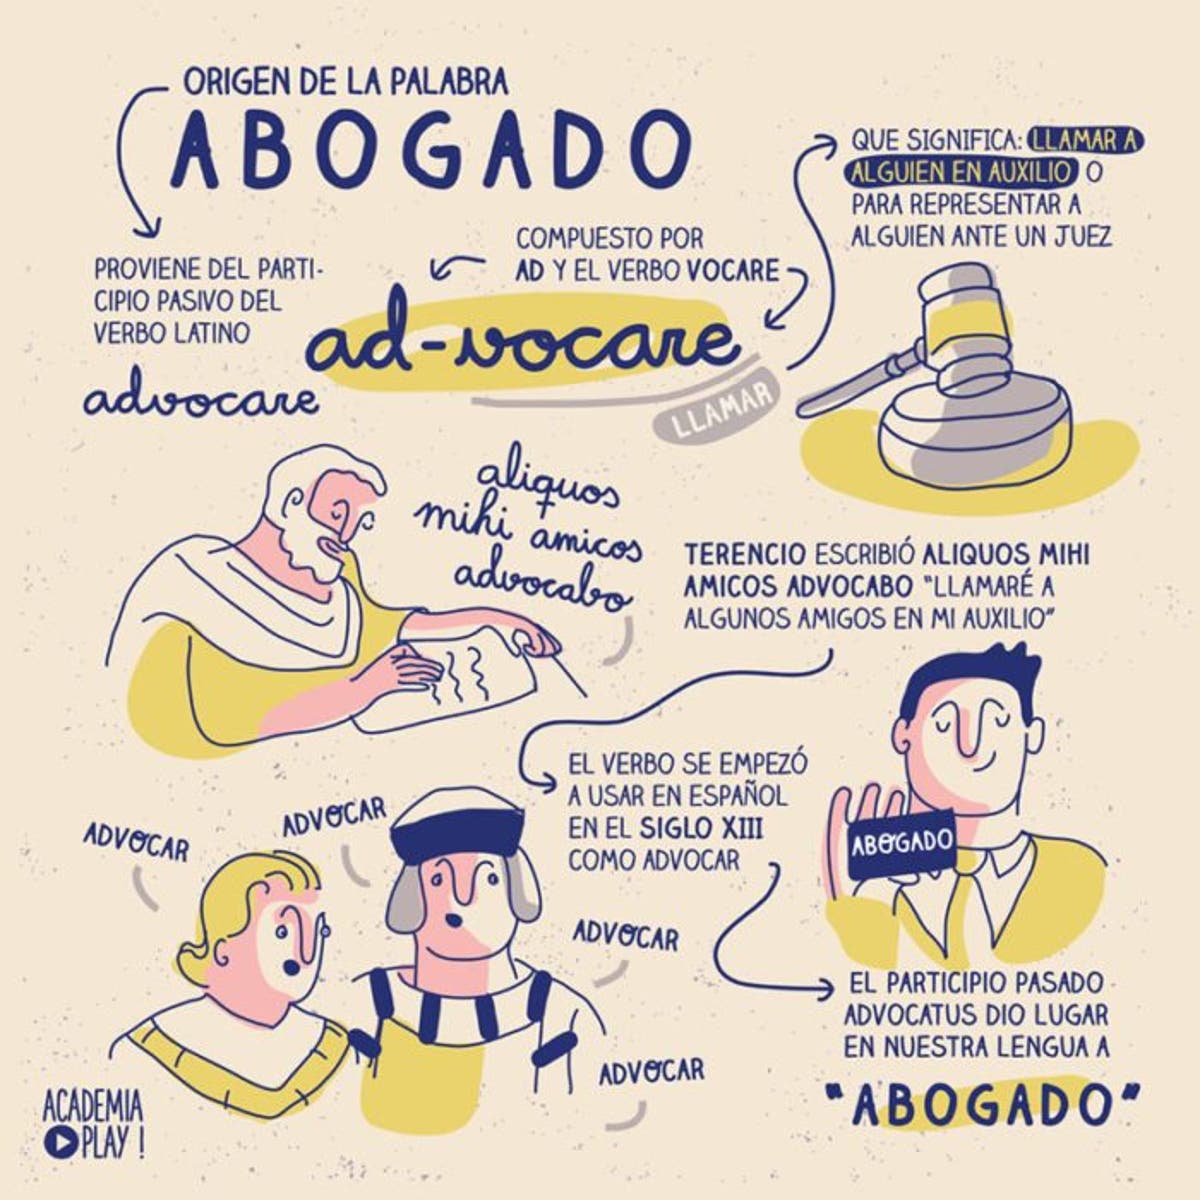 ORIGEN DE LA PALABRA
ABOGADO
PROVIENE DEL PARTI-
CIPIO PASIVO DEL
VERBO LATINO
advocare
COMPUESTO POR
AD Y EL VERBO VOCARE
ad-vocare
LLAMAR
QUE SIGNIFICA: LLAMAR A
ALGUIEN EN AUXILIO O
PARA REPRESENTAR A
ALGUIEN ANTE UN JUEZ
aliquos
mihi amicos
advocabo
TERENCIO ESCRIBIÓ ALIQUOS MIHI
AMICOS ADVOCABO "LLAMARÉ A
ALGUNOS AMIGOS EN MI AUXILIO"
EL VERBO SE EMPEZÓ
A USAR EN ESPAÑOL
EN EL SIGLO XIII
COMO ADVOCAR
ADVOCAR
ADVOCAR
ADVOCAR
ADVOCAR
ABOGADO
EL PARTICIPIO PASADO
ADVOCATUS DIO LUGAR
EN NUESTRA LENGUA A
"ABOGADO"
ACADEMIA
PLAY!